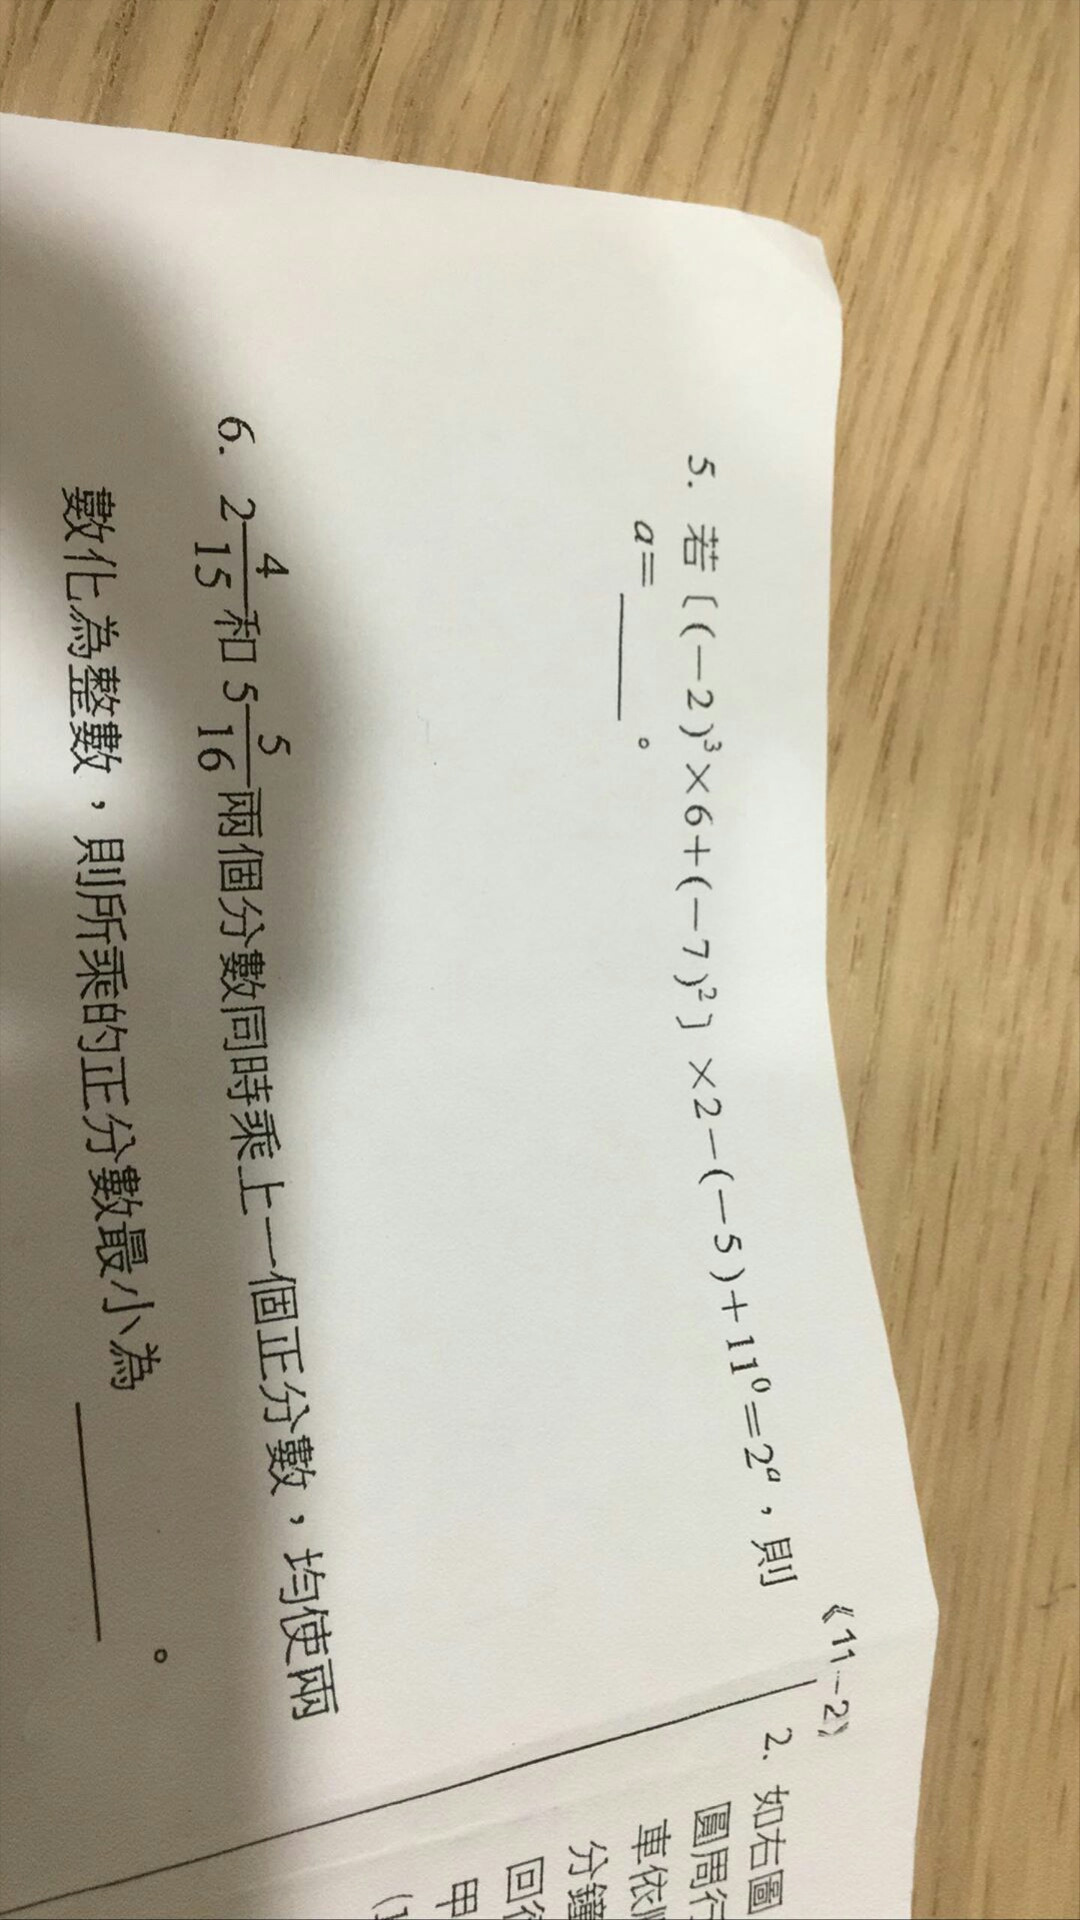 《11－2》
5. 若〔(－2)³×6＋(－7)²〕×2－(－5)＋11⁰＝2ᵃ，則
a＝＿＿＿。
6. 2 4/15 和 5 5/16 兩個分數同時乘上一個正分數，均使兩
數化為整數，則所乘的正分數最小為＿＿＿＿。
2. 如右圖
圓周行
車依順
分鐘
回
甲
(1